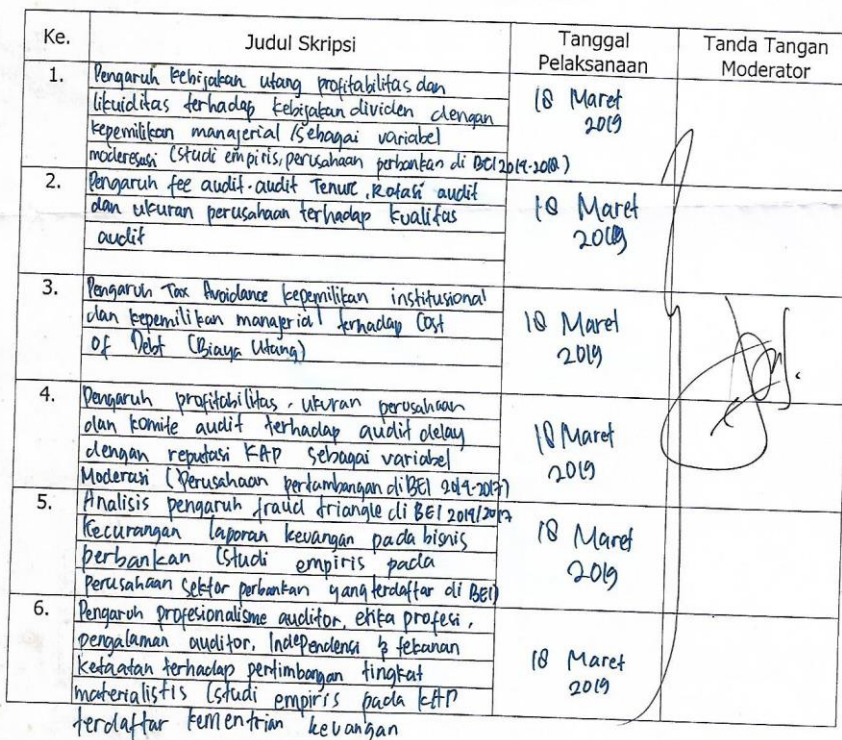 Ke. Judul Skripsi Tanggal Pelaksanaan Tanda Tangan Moderator
1. Pengaruh kebijakan utang profitabilitas dan
likuiditas terhadap kebijakan dividen dengan
kepemilikan manajerial (sebagai variabel
moderesasi (studi empiris, perusahaan perbankan di BEI 2014-2018)
18 Maret
2019
2. Pengaruh fee audit. audit Tenure, Rotasi audit
dan ukuran perusahaan terhadap kualitas
audit
18 Maret
2019
3. Pengaruh Tax Avoidance kepemilikan institusional
dan kepemilikan manajerial terhadap Cost
Of Debt (Biaya Utang)
18 Maret
2019
4. Pengaruh profitabilitas, ukuran perusahaan
dan komite audit terhadap audit delay
dengan reputasi KAP sebagai variabel
Moderasi (Perusahaan pertambangan di BEI 2014-2017)
18 Maret
2019
5. Analisis pengaruh fraud triangle di BEI 2014/2017
Kecurangan laporan keuangan pada bisnis
perbankan (Studi empiris pada
perusahaan sektor perbankan yang terdaftar di BEI)
18 Maret
2019
6. Pengaruh profesionalisme auditor, etika profesi,
pengalaman auditor, Independensi & tekanan
ketaatan terhadap pertimbangan tingkat
materialistis (studi empiris pada KAP
terdaftar kementrian keuangan
18 Maret
2019